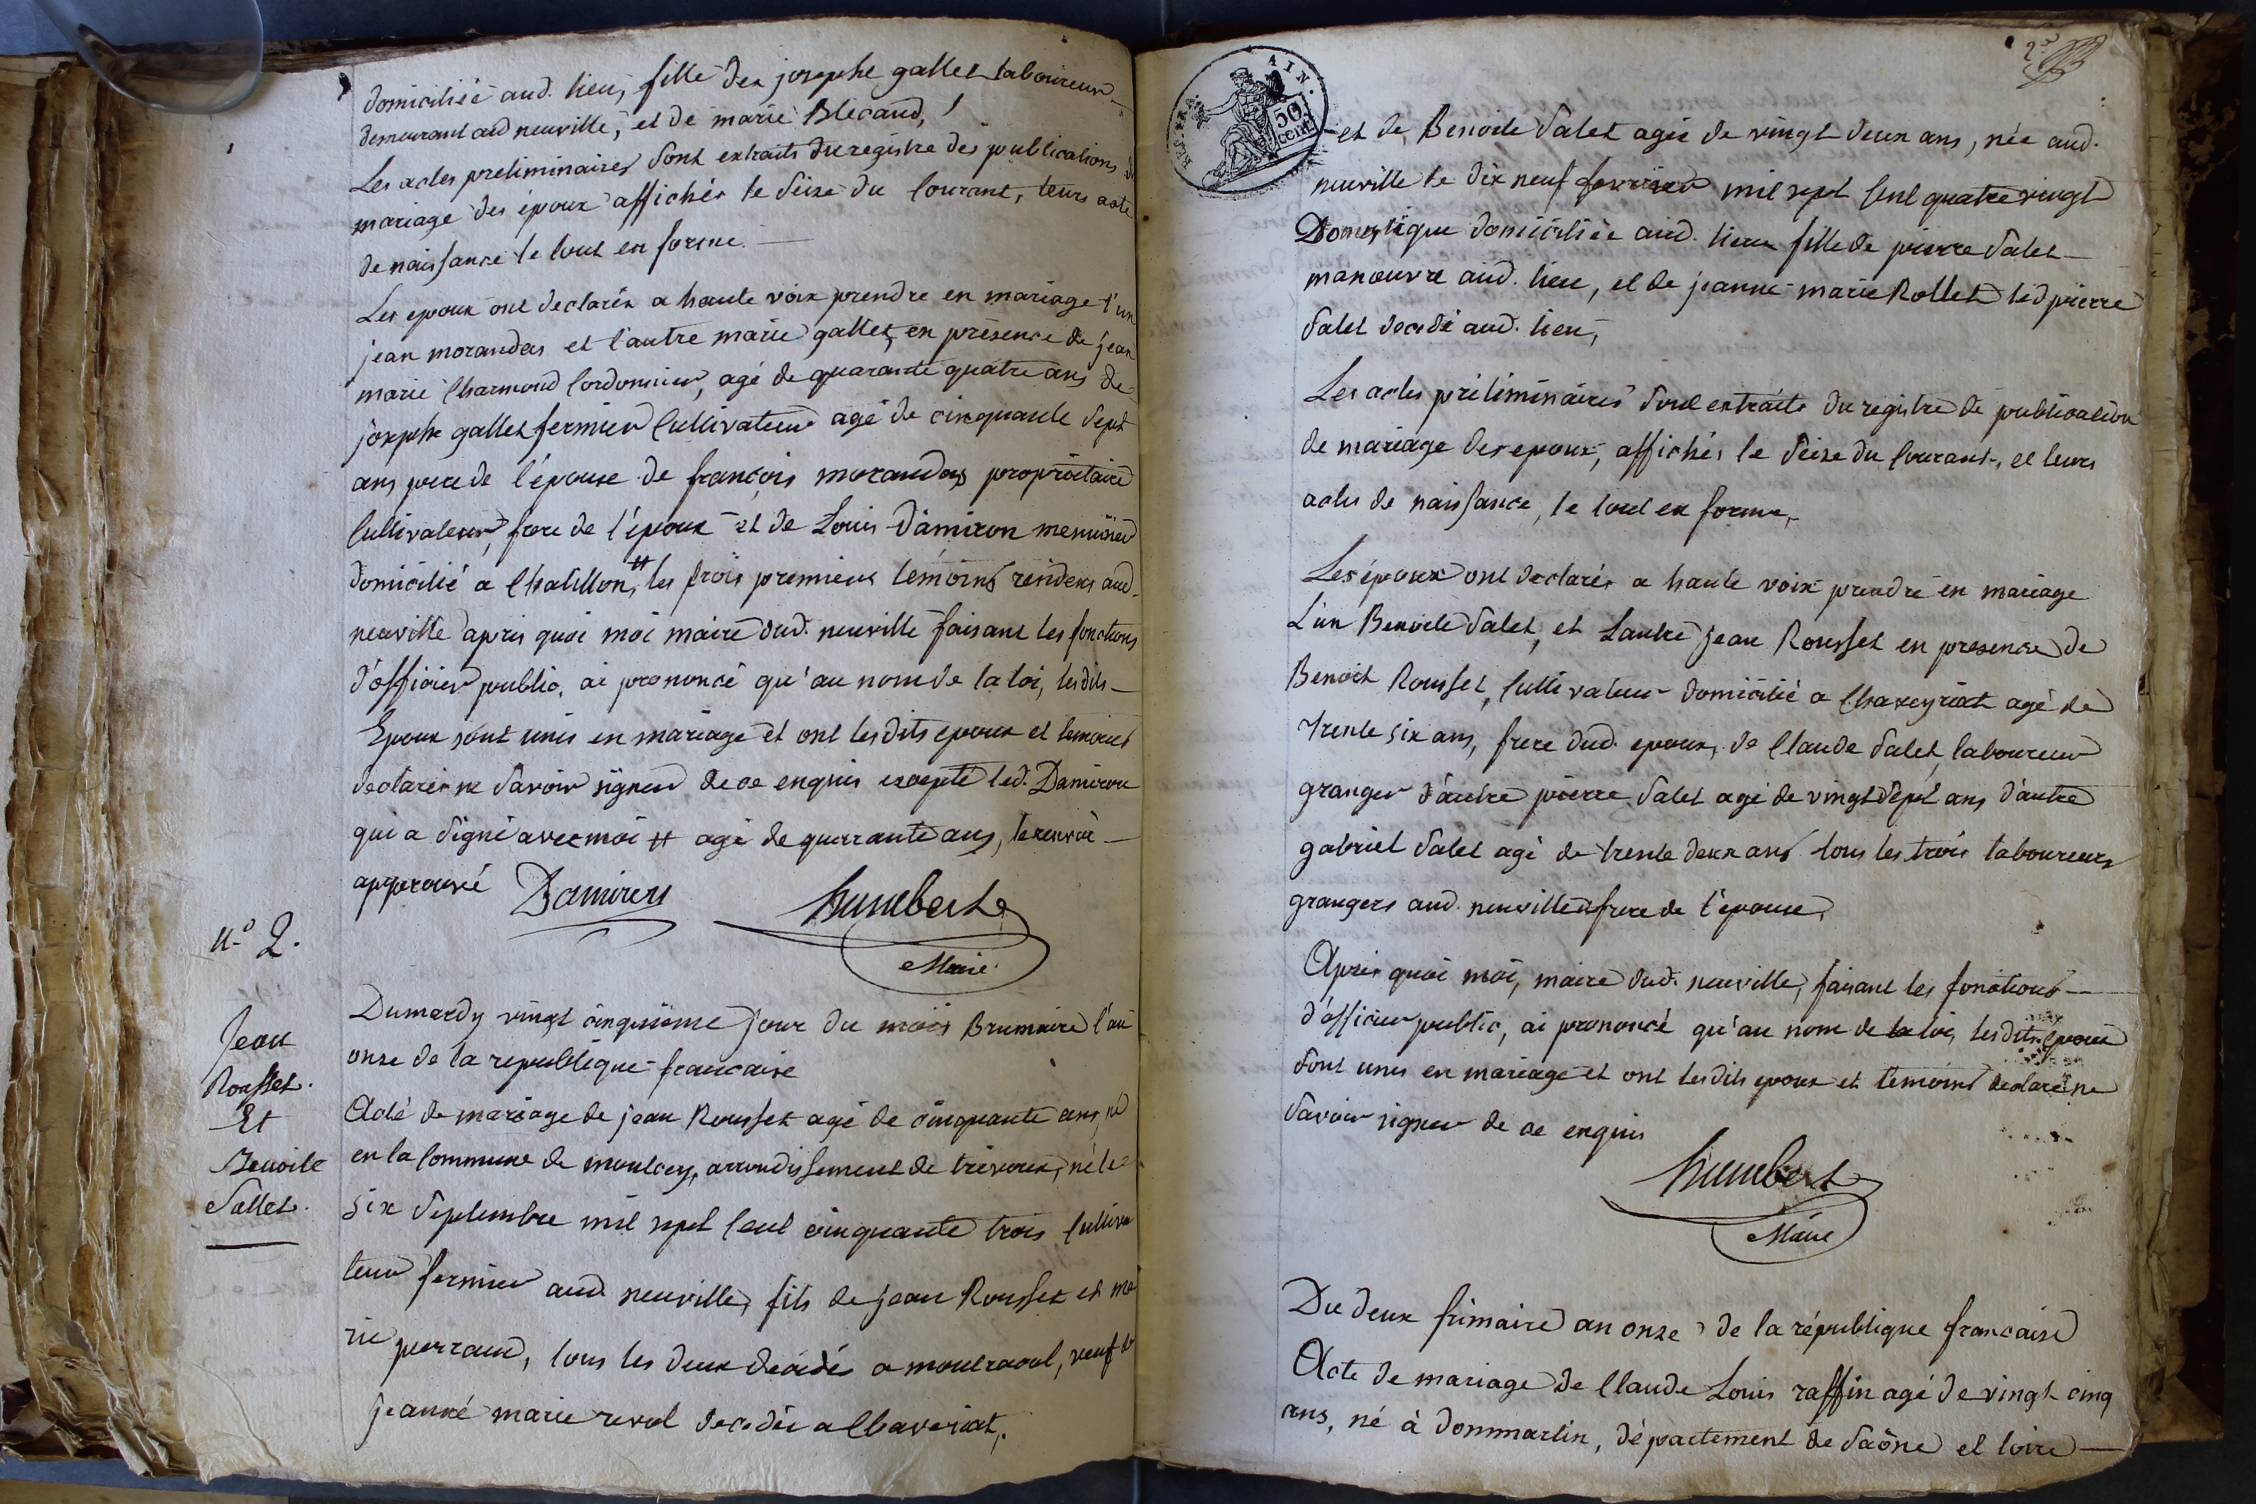 domiciliée aud. lieu, fille de joseph gallet laboureur
demeurant aud neuville, et de marie Blecaud,
Les actes preliminaires sont extraits du registre des publications de
mariage des époux affichés le seize du courant, leurs acte
de naissance le tout en forme.
Les epoux ont declarés a haute voix prendre en mariage l'un
jean morandas et l'autre marie gallet, en présence de jean
marie Charmond Cordonnier, agé de quarante quatre ans de
joseph gallet fermier Cultivateur agé de cinquante sept
ans pere de l'épouse de françois morandas propriétaire
Cultivateur, frere de l'époux et de Louis Damiron menuisier
domicilié a Chatillon, # les trois premiers témoins résidens aud.
neuville apris quoi moi maire dud. neuville faisant les fonctions
d'officier public, ai prononcé qu'au nom de la loi, les dits
Epoux sont unis en mariage et ont les dits epoux et témoins
declarés ne savoir signer de ce enquis excepté led. Damiron
qui a signé avec moi # agé de quarrante ans, le renvoi
approuvé Damiron humbert
Maire
n.o 2.
Jean
Rousset.
Et
Benoite
Sallet.
Du mardy vingt cinquième jour du mois Brumaire l'an
onze de la republique francaise
Acte de mariage de jean Rousset agé de cinquante ans, né
en la Commune de montcey, arrondissement de trevoux, né le
six septembre mil sept Cent cinquante trois Cultiva
teur fermier aud neuville, fils de jean Rousset et ma
rie perraud, tous les deux décédés a montracol, veuf de
jeanne marie revol decedée a Chaveriat,
RÉP. FRA. AIN.
50
cent.
2e
et de Benoite Salet agée de vingt deux ans, née aud.
neuville le dix neuf fevrier mil sept Cent quatre vingt
Domestique domiciliée aud. lieu fille de pierre Salet
manoeuvre aud. lieu, et de jeanne marie Rollet led pierre
Salet decedé aud. lieu,
Les actes préliminaires sont extraits du registre de publication
de mariage des epoux, affichés le seize du Courant, et leurs
actes de naissance, le tout en forme,
Les époux ont declarés a haute voix prendre en mariage
L'un Benoite Salet, et Lautre Jean Rousset en presence de
Benoit Rousset, Cultivateur domicilié a Chaveyriat agé de
trente six ans, frere dud. epoux, de Claude Salet, laboureur
granger d'autre pierre Salet agé de vingt sept ans, d'autre
gabriel Salet agé de trente deux ans tous les trois laboureurs
grangers aud. neuville frere de l'epouse,
Après quoi moi, maire dud. neuville, faisant les fonctions
d'officier public, ai prononcé qu'au nom de la loi, les dits epoux
sont unis en mariage et ont les dits epoux et témoins declaré ne
Savoir signer de ce enquis
humbert
Maire
Du deux frimaire an onze de la république francaise
Acte de mariage de Claude Louis raffin agé de vingt cinq
ans, né à dommartin, département de Saône et loire